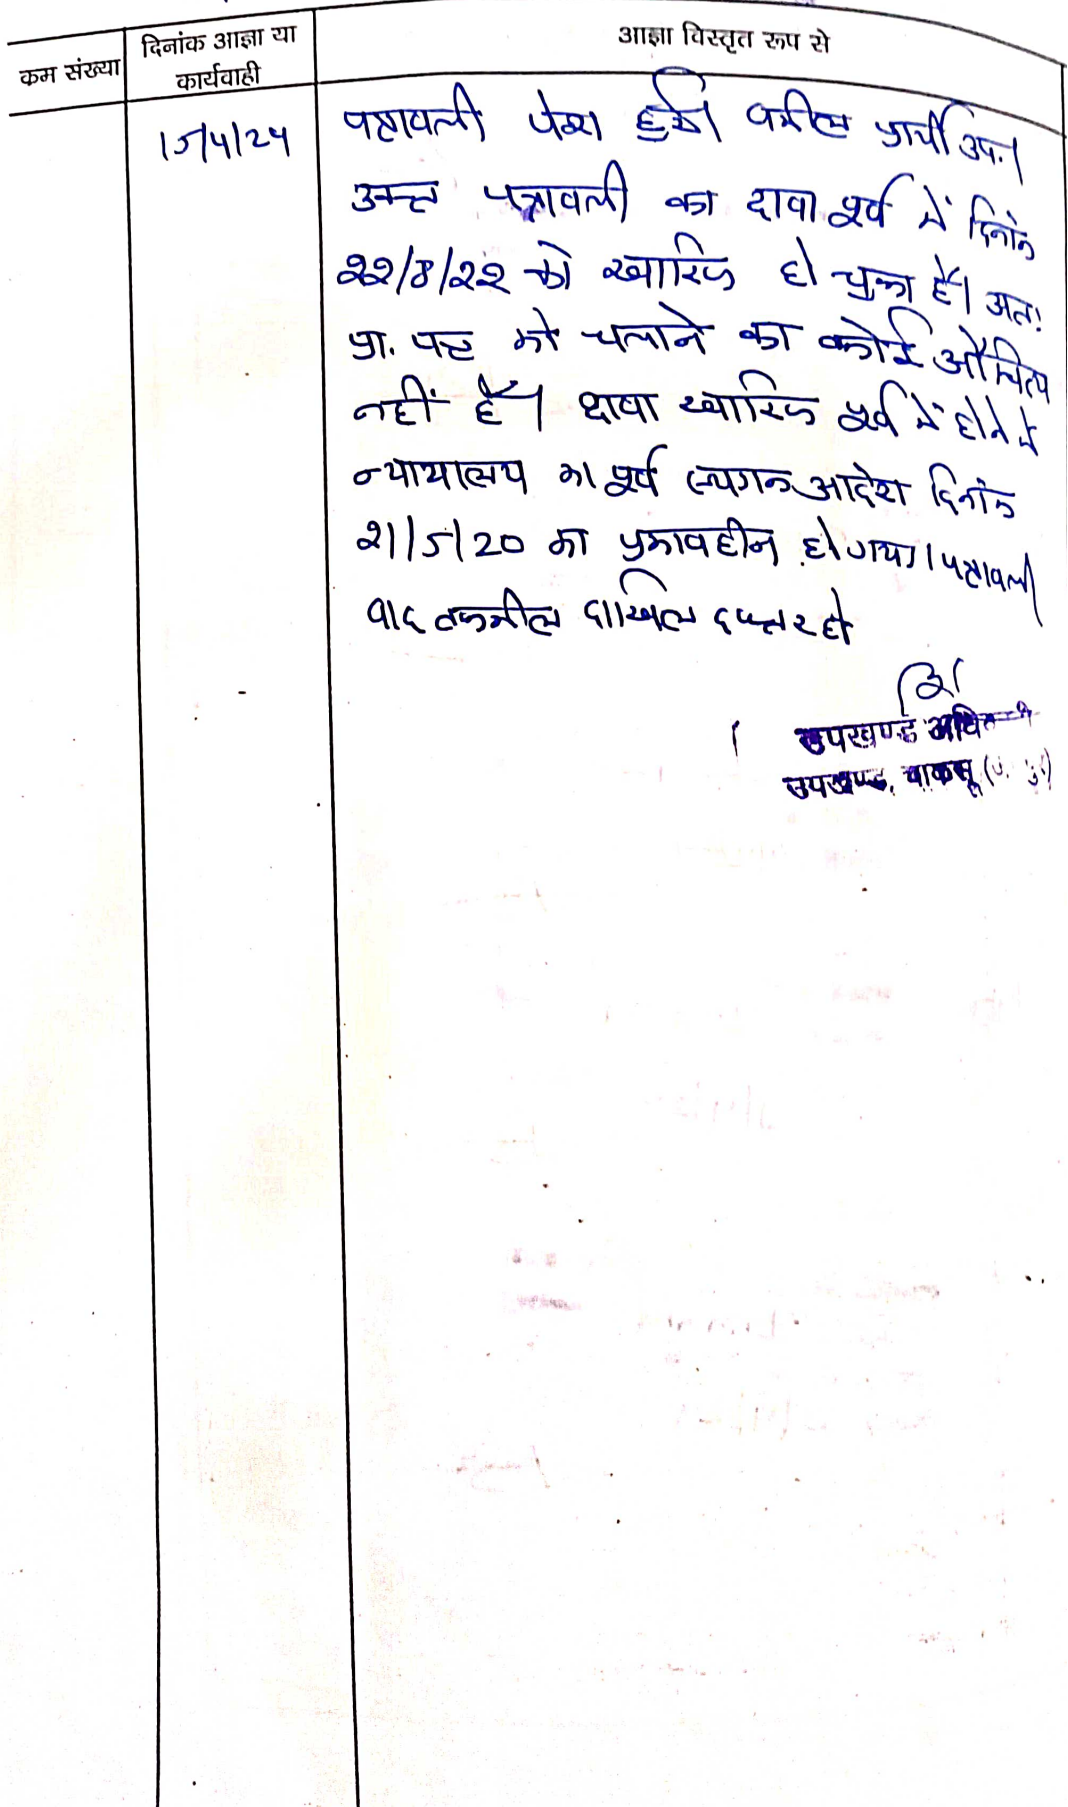 क्रम संख्या
दिनांक आज्ञा या
कार्यवाही
आज्ञा विस्तृत रूप से
15/4/24
पत्रावली पेश हुई। वकील प्रार्थी उप.।
उक्त पत्रावली का दावा पूर्व में दिनांक
22/8/22 को खारिज हो चुका है। अतः
प्रा. पत्र को चलाने का कोई औचित्य
नहीं है। दावा खारिज पूर्व में होने से
न्यायालय का पूर्व स्थगन आदेश दिनांक
21/5/20 का प्रभावहीन हो गया। पत्रावली
बाद तकमील दाखिल दफ्तर हो
उपखण्ड
उपखण्ड, चाकसू